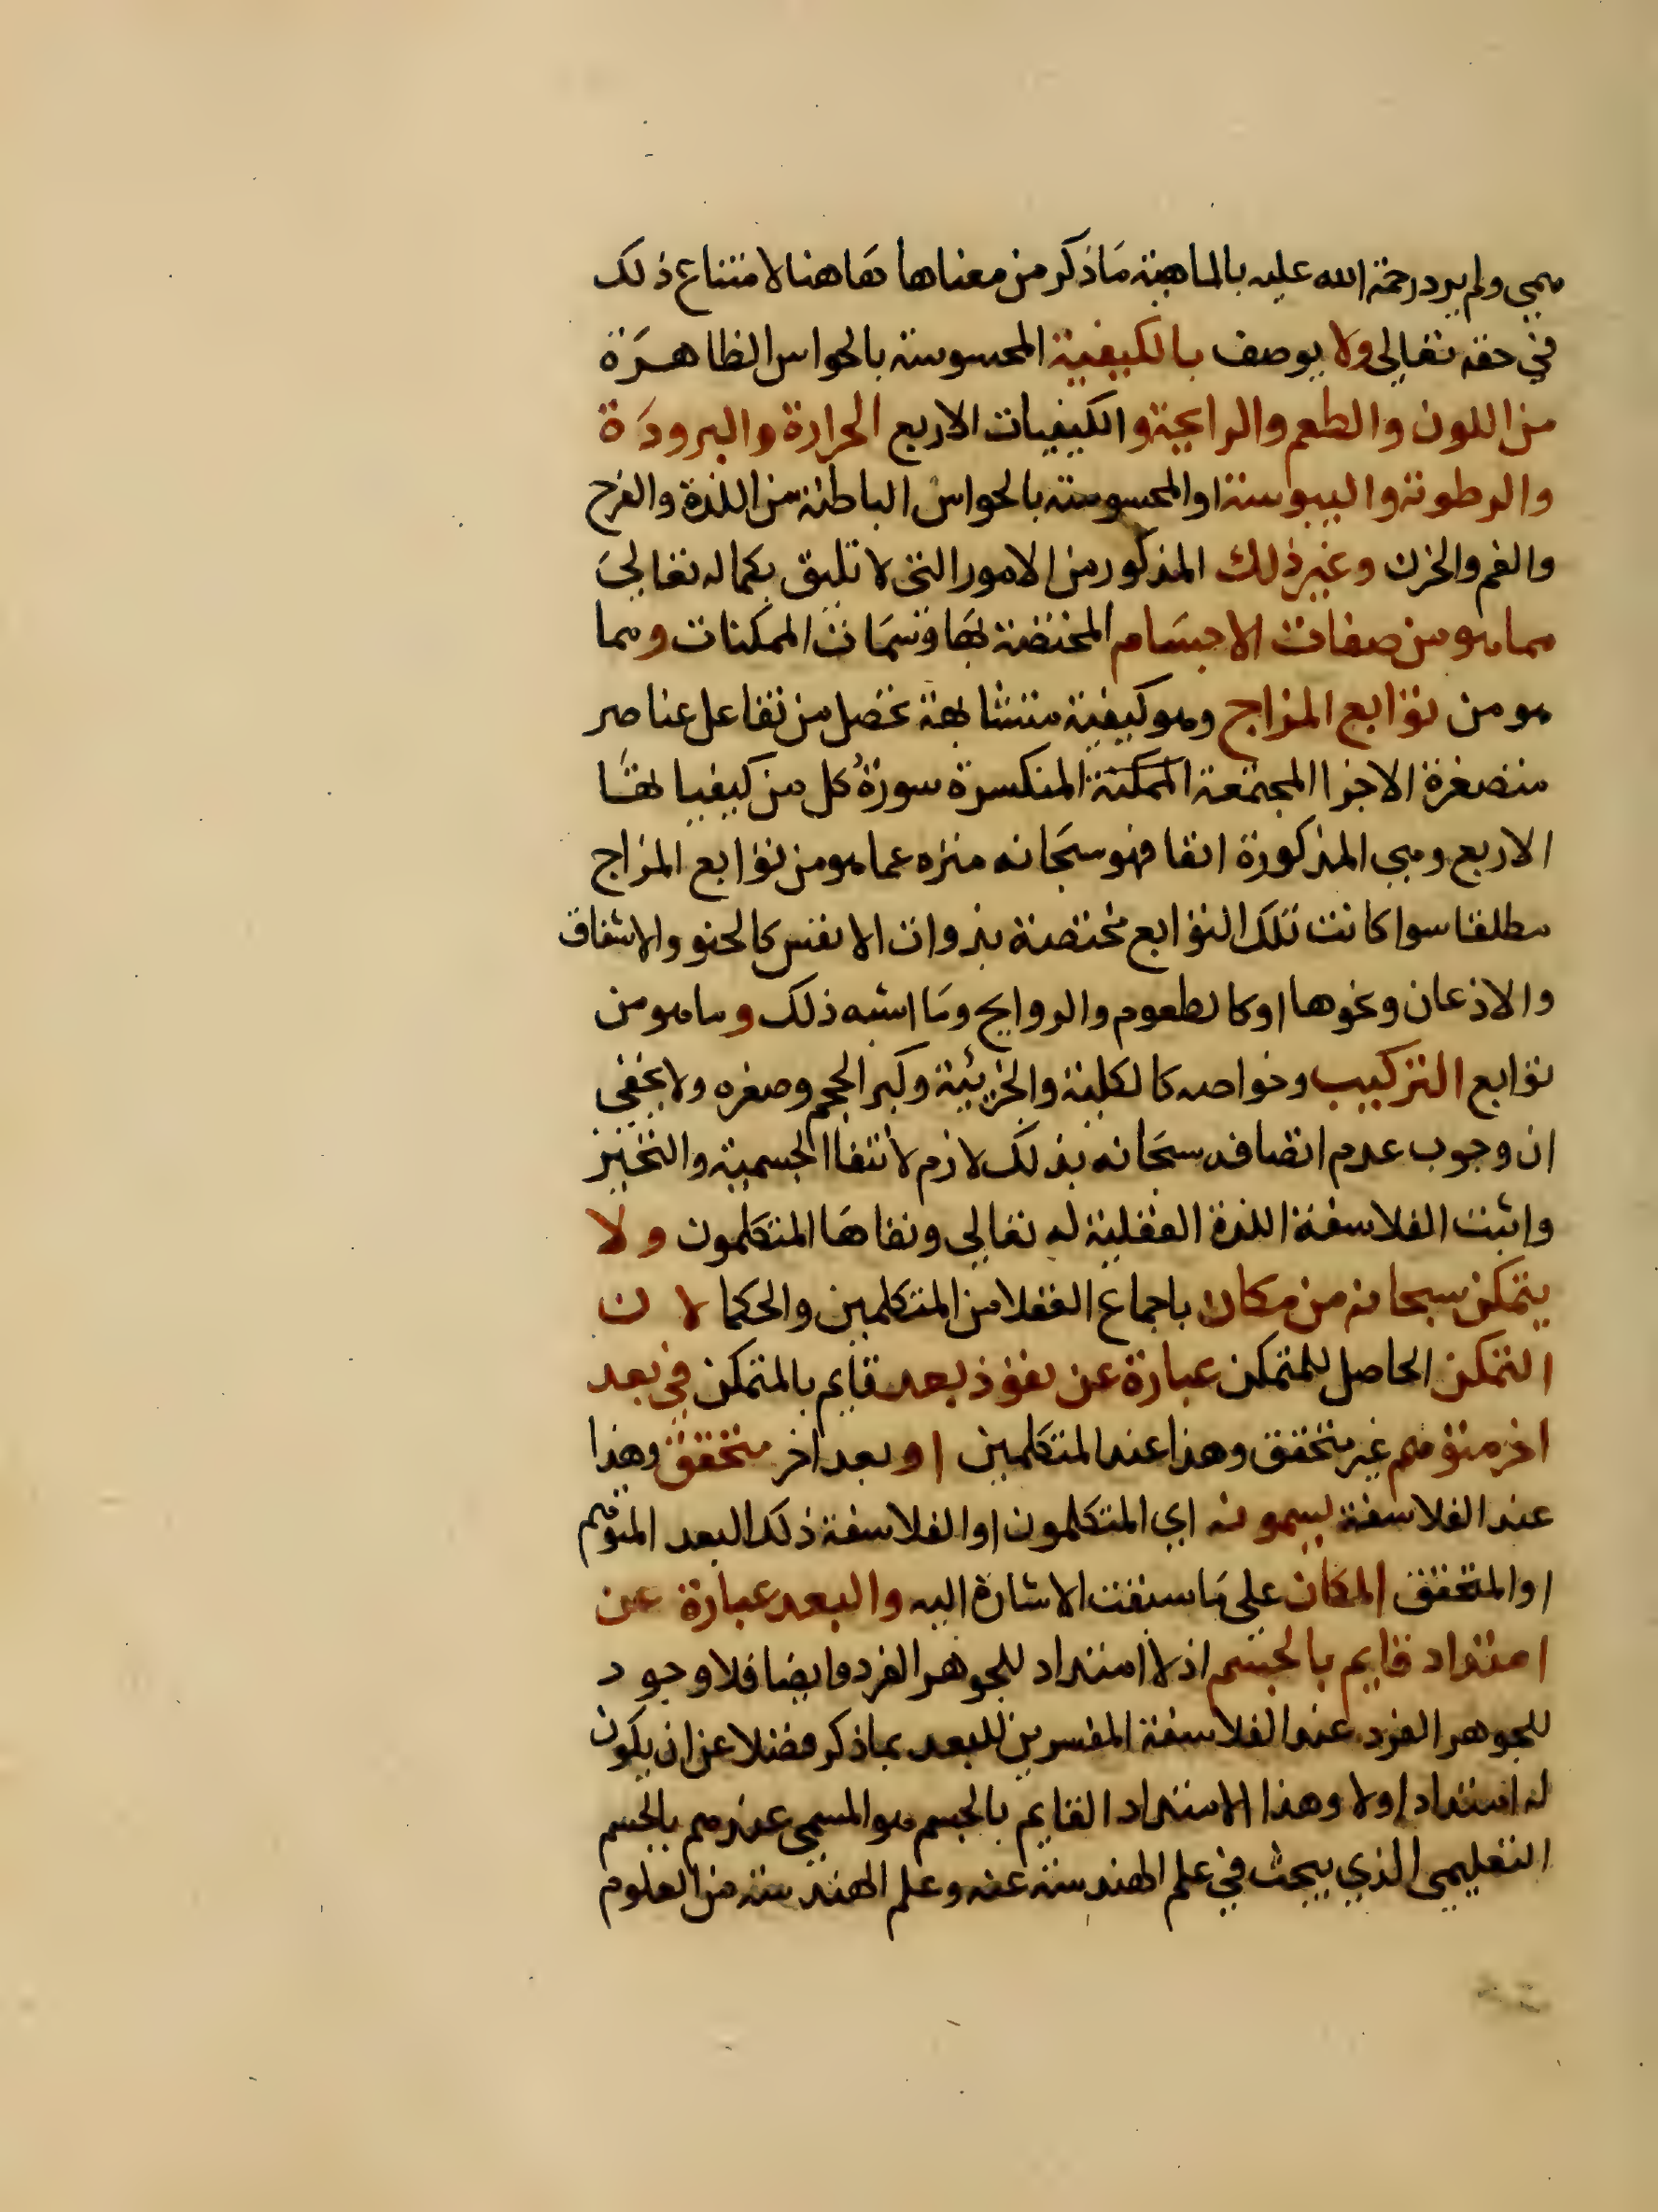 هي ولم يرد رحمة الله عليه بالماهية ما ذكر من معناها هاهنا لامتناع ذلك
في حقه تعالى ولا يوصف بالكيفية المحسوسة بالحواس الظاهرة
من اللون والطعم والرايحة والكيفيات الاربع الحرارة والبرودة
والرطوبة واليبوسة او المحسوسة بالحواس الباطنة من اللذة والفرح
والغم والحزن وغير ذلك المذكور من الامور التي لا تليق بكماله تعالى
مما هو من صفات الاجسام المختصة بها وسمات الممكنات ومما
هو من توابع المزاج وهو كيفية متشابهة تحصل من تفاعل عناصر
متصغرة الاجزا المجتمعة الممكنة المنكسرة سورة كل من كيفياتها
الاربع وهي المذكورة انفا فهو سبحانه منزه عما هو من توابع المزاج
مطلقا سوا كانت تلك التوابع مختصة بذوات الانفس كالحنو والاشفاق
والاذعان ونحوها او كالطعوم والروايح وما اشبه ذلك وما هو من
توابع التركيب وخواصه كالكلية والجزيئية وكبر الحجم وصغره ولا يخفى
ان وجوب عدم اتصافه سبحانه بذلك لازم لانتفا الجسمية والتحيز
واثبت الفلاسفة اللذة العقلية له تعالي ونفاها المتكلمون ولا
يتمكن سبحانه من مكان باجماع العقلا من المتكلمين والحكما لان
التمكن الحاصل للمتمكن عبارة عن نفوذ بعد قايم بالمتمكن في بعد
اخر متوهم غير متحقق وهذا عند المتكلمين او بعد اخر متحقق وهذا
عند الفلاسفة يسمونه اي المتكلمون او الفلاسفة ذلك البعد المتوهم
او المتحقق المكان على ما سبقت الاشارة اليه والبعد عبارة عن
امتداد قايم بالجسم اذ لا امتداد للجوهر الفرد وايضا فلا وجود
للجوهر الفرد عند الفلاسفة المفسرين للبعد بما ذكر فضلا عن ان يكون
له امتداد اولا وهذا الامتداد القايم بالجسم هو المسمى عندهم بالجسم
التعليمي الذي يبحث في علم الهندسة عنه وعلم الهندسة من العلوم